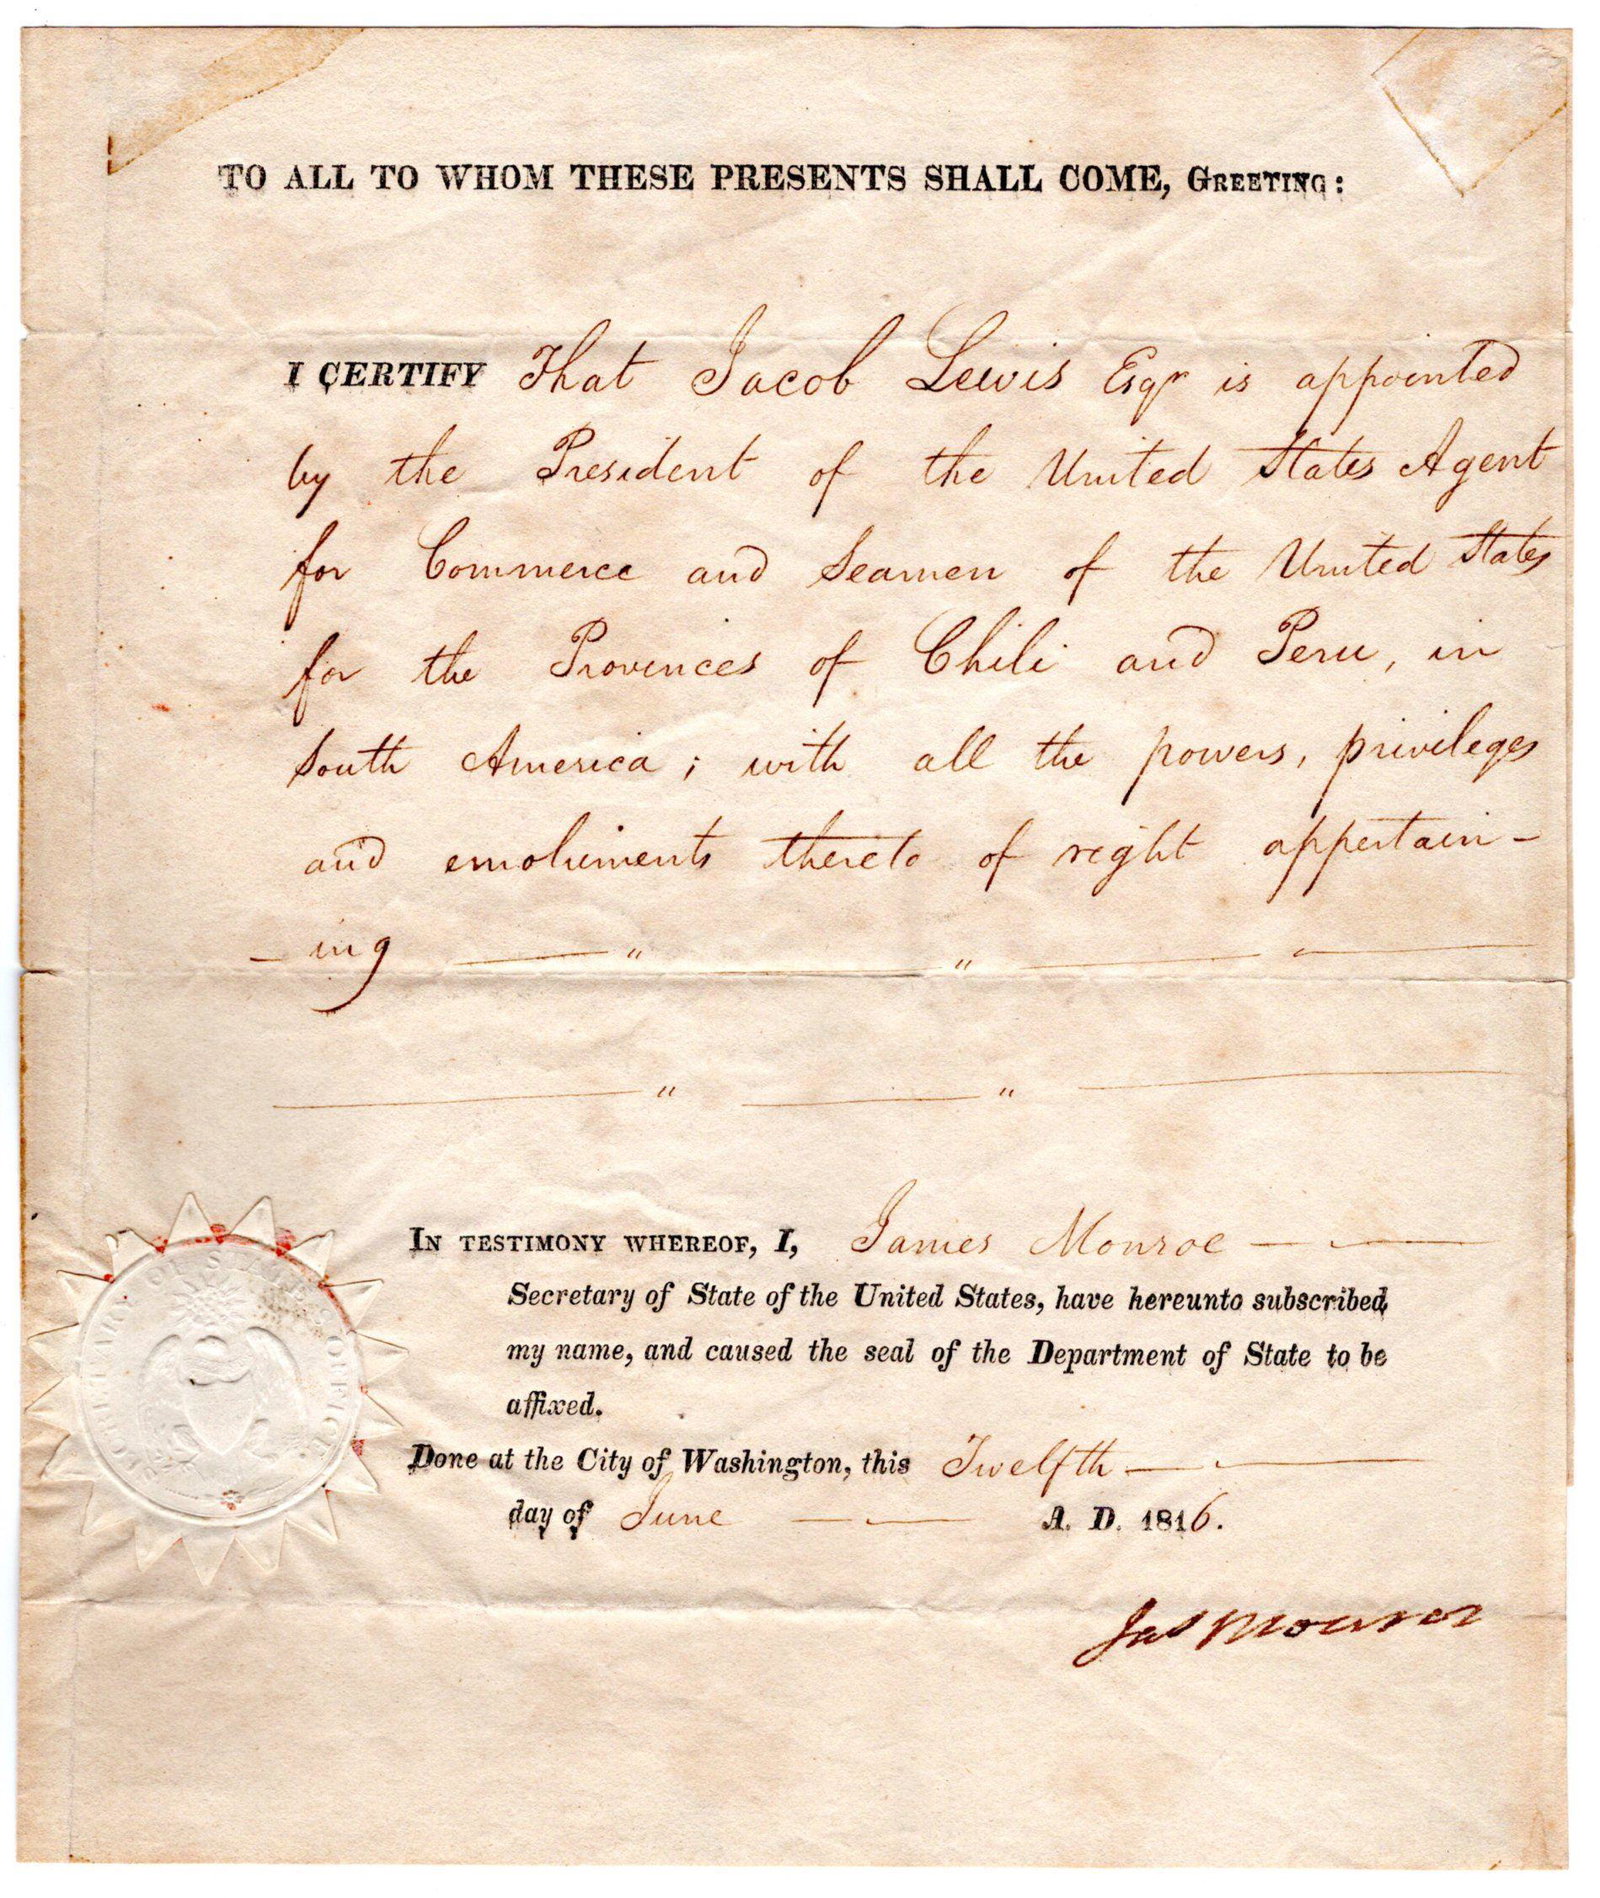 TO ALL TO WHOM THESE PRESENTS SHALL COME, GREETING:
I CERTIFY That Jacob Lewis Esqr is appointed
by the President of the United States Agent
for Commerce and Seamen of the United States
for the Provinces of Chili and Peru, in
South America; with all the powers, privileges
and emoluments thereto of right appertain-
- ing — " — " —
— " — " —
IN TESTIMONY WHEREOF, I, James Monroe — —
Secretary of State of the United States, have hereunto subscribed
my name, and caused the seal of the Department of State to be
affixed.
Done at the City of Washington, this Twelfth — —
day of June — — A. D. 1816.
Jas Monroe
SECRETARY OF STATES OFFICE